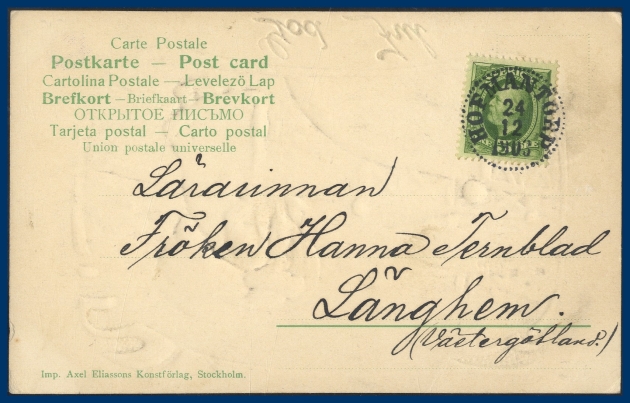 Carte Postale
Postkarte — Post card
Cartolina Postale — Levelező Lap
Brefkort — Briefkaart — Brevkort
ОТКРЫТОЕ ПИСЬМО
Tarjeta postal — Carto postal
Union postale universelle
God Jul
HOFMANTORP
24
12
1905
Lärarinnan
Fröken Hanna Ternblad
Länghem.
(Västergötland.)
Imp. Axel Eliassons Konstförlag, Stockholm.